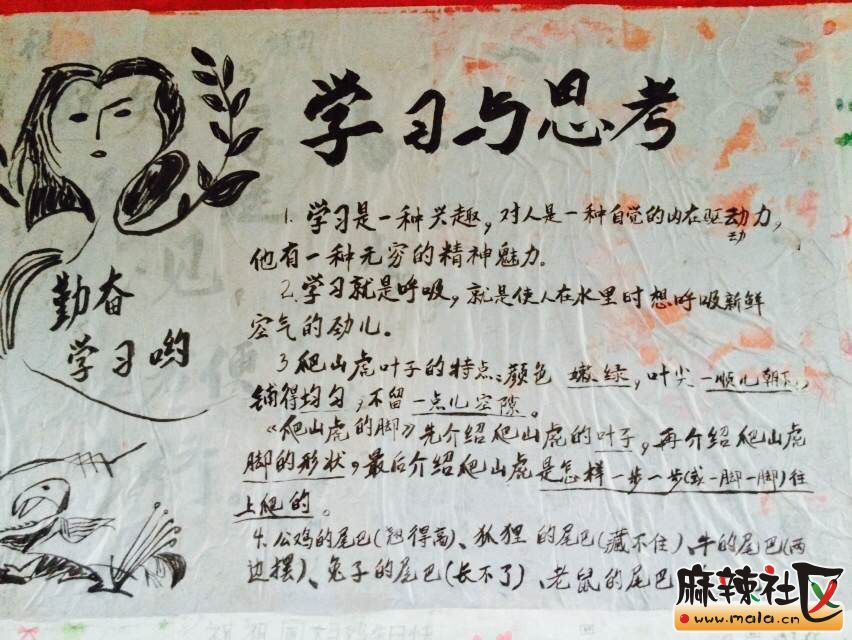 学习与思考
1. 学习是一种兴趣，对人是一种自觉的内在驱动力，
动
他有一种无穷的精神魅力。
2. 学习就是呼吸，就是使人在水里时想呼吸新鲜
空气的劲儿。
3 爬山虎叶子的特点：颜色 嫩绿，叶尖一顺儿朝下，
铺得均匀，不留一点儿空隙。
《爬山虎的脚》先介绍爬山虎的叶子，再介绍爬山虎
脚的形状，最后介绍爬山虎是怎样一步一步(或一脚一脚)往
上爬的。
4. 公鸡的尾巴(翘得高)、狐狸的尾巴(藏不住)、牛的尾巴(两
边摆)、兔子的尾巴(长不了)、老鼠的尾巴
勤奋
学习哟
麻辣社区
www.mala.cn